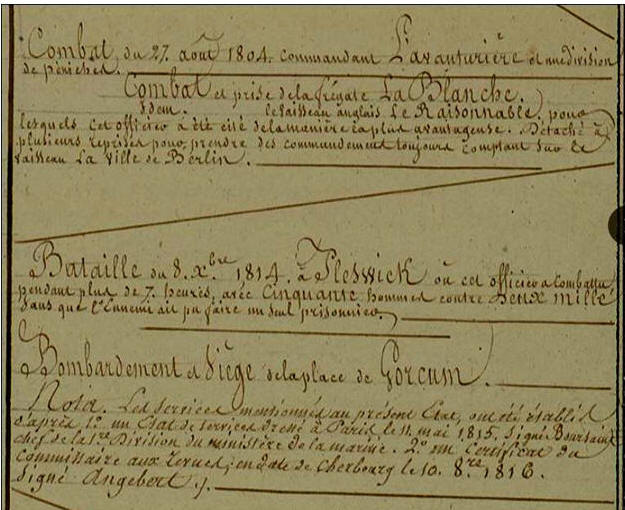 Combat du 27 août 1804. commandant L'avanturière et une division
de péniches.
Combat et prise de la frégate La Blanche.
Idem. le vaisseau anglais Le Raisonnable, pour
lesquels cet officier a été cité de la manière la plus avantageuse. Détaché à
plusieurs reprises pour prendre des commandemens toujours comptant sur le
vaisseau La Ville de Berlin.
Bataille du 8. Xbre 1814. à Fleswick où cet officier a combattu
pendant plus de 7. heures, avec Cinquante hommes contre Deux mille
sans que l'Ennemi ait pu faire un seul prisonnier.
Bombardement et Siège de la place de Gorcum.
Nota. Les services mentionnés au présent Etat, ont été établis
d'après 1° un Etat de services dressé à Paris le 11. mai 1815. Signé Boursaint
chef de la 1re Division du ministère de la marine. 2° un Certificat du
Commissaire aux revues, en date de Cherbourg le 10. 8.re 1816.
Signé Angebert ./.